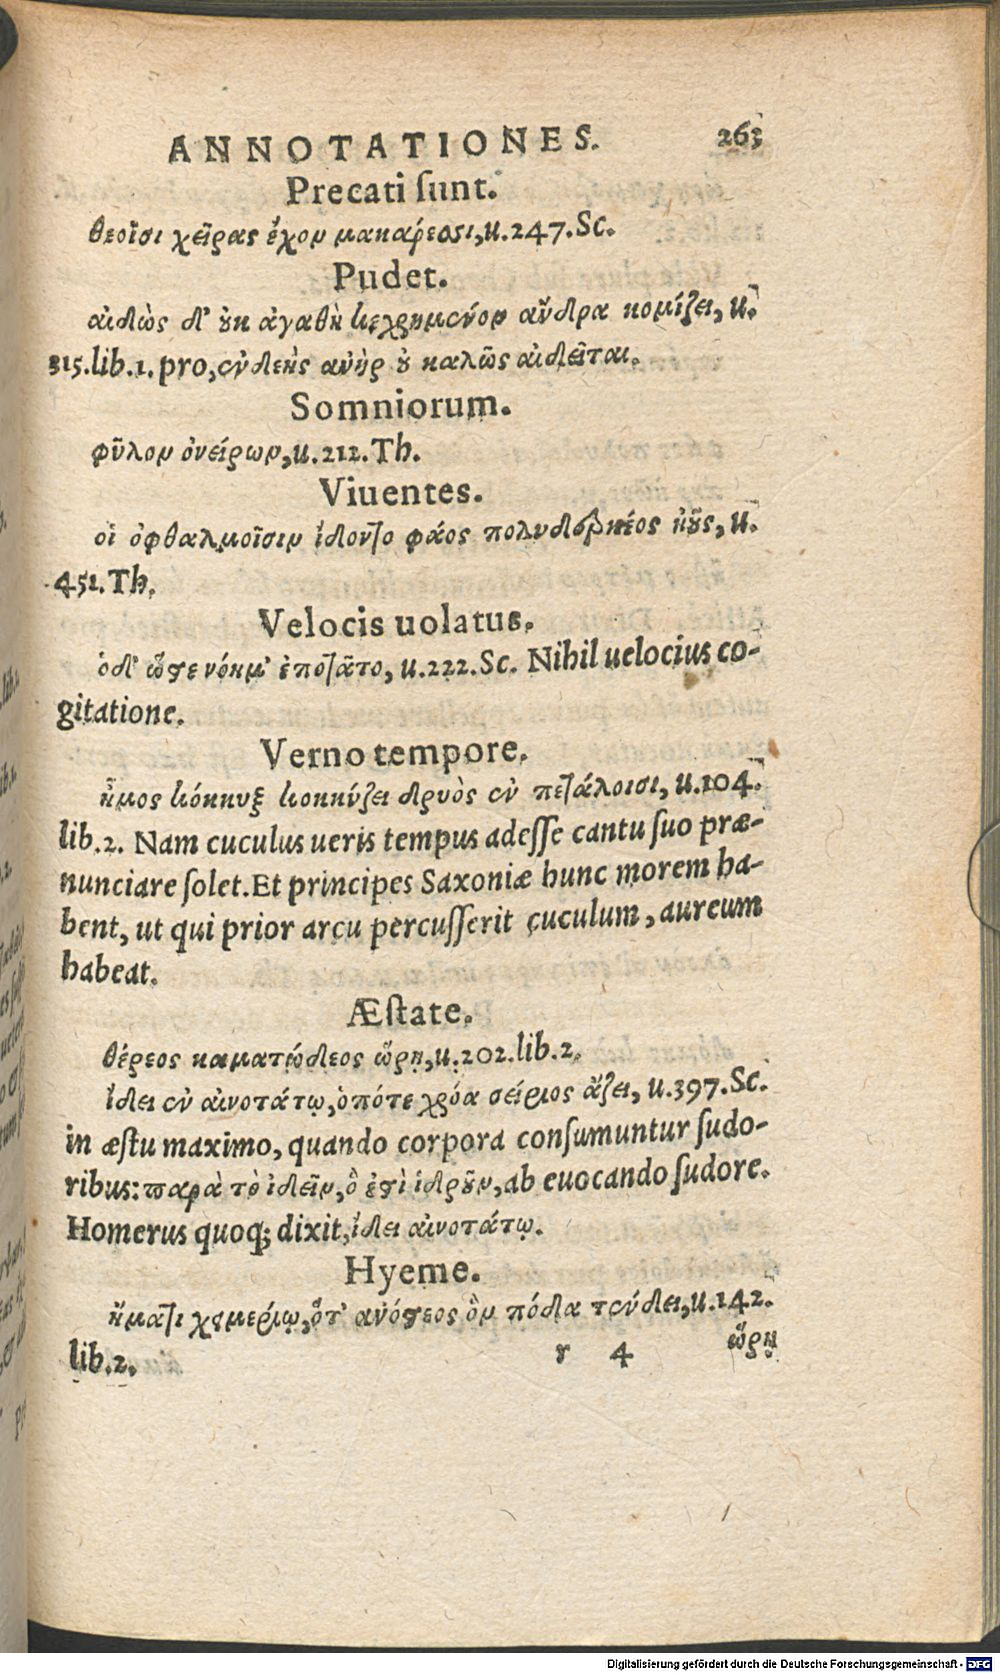 ANNOTATIONES. 263
Precati sunt.
θεοῖσι χεῖρας ἔχον μακάρεσσι, u.247. Sc.
Pudet.
αἰδὼς δ' οὐκ ἀγαθὴ κεχρημένον ἄνδρα κομίζει, u.
315. lib. 1. pro, ἐνδεὴς ἀνὴρ οὐ καλῶς αἰδεῖται.
Somniorum.
φῦλον ὀνείρων, u.212. Th.
Viuentes.
οἱ ὀφθαλμοῖσιν ἴδοντο φάος πολυδερκέος ἠοῦς, u.
451. Th.
Velocis uolatus.
ὁδ' ὥστε νόημ' ἐποτᾶτο, u.222. Sc. Nihil uelocius co-
gitatione.
Verno tempore.
ἦμος κόκκυξ κοκκύζει δρυὸς ἐν πετάλοισι, u.104.
lib. 2. Nam cuculus ueris tempus adesse cantu suo præ-
nunciare solet. Et principes Saxoniæ hunc morem ha-
bent, ut qui prior arcu percusserit cuculum, aureum
habeat.
Æstate.
θέρεος καματώδεος ὥρῃ, u.202. lib. 2.
ἴδει ἐν αἰνοτάτῳ, ὁπότε χρόα σείριος ἄζει, u.397. Sc.
in æstu maximo, quando corpora consumuntur sudo-
ribus: παρὰ τὸ ἰδεῖν, ὅ ἐστὶ ἱδροῦν, ab euocando sudore.
Homerus quoq; dixit, ἴδει αἰνοτάτῳ.
Hyeme.
ἤματι χειμερίῳ, ὅτ' ἀνόστεος ὃν πόδα τένδει, u.142.
lib. 2. r 4 ὥρῃ
Digitalisierung gefördert durch die Deutsche Forschungsgemeinschaft - DFG